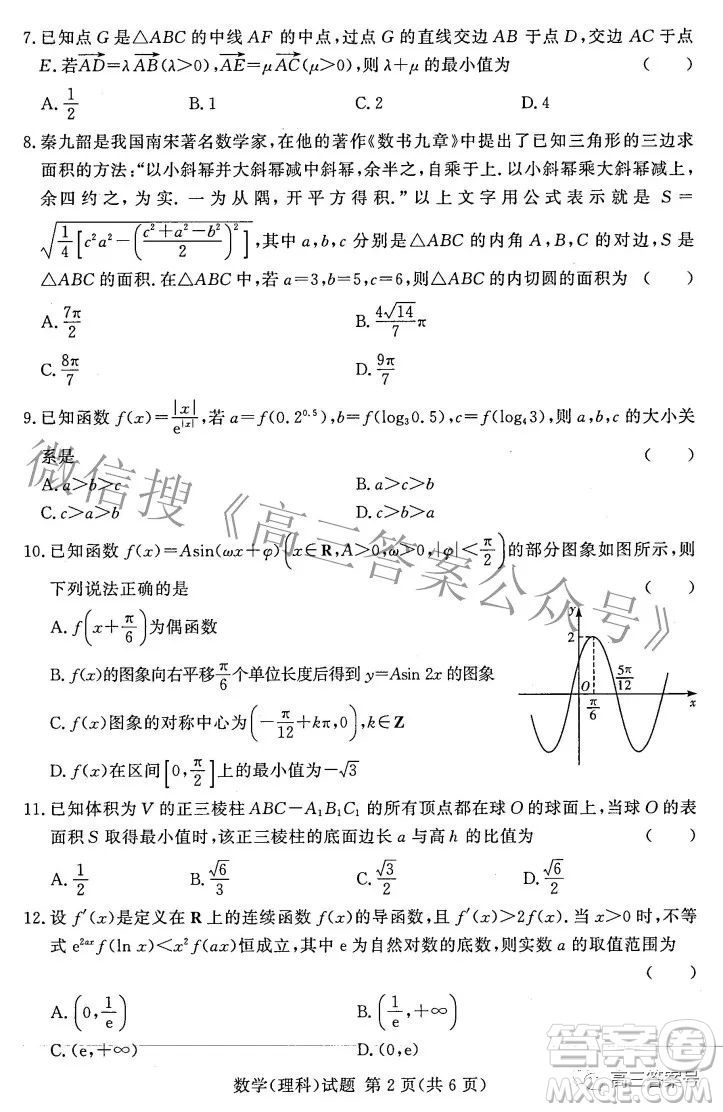 7. 已知点 G 是△ABC 的中线 AF 的中点,过点 G 的直线交边 AB 于点 D,交边 AC 于点
E. 若$\overrightarrow{AD}=\lambda\overrightarrow{AB}(\lambda>0),\overrightarrow{AE}=\mu\overrightarrow{AC}(\mu>0)$,则 λ+μ 的最小值为 (  )
A. $\frac{1}{2}$ B. 1 C. 2 D. 4
8. 秦九韶是我国南宋著名数学家,在他的著作《数书九章》中提出了已知三角形的三边求
面积的方法:“以小斜幂并大斜幂减中斜幂,余半之,自乘于上.以小斜幂乘大斜幂减上,
余四约之,为实.一为从隅,开平方得积.”以上文字用公式表示就是 S=
$\sqrt{\frac{1}{4}\left[c^2a^2-\left(\frac{c^2+a^2-b^2}{2}\right)^2\right]}$,其中 a,b,c 分别是△ABC 的内角 A,B,C 的对边,S 是
△ABC 的面积.在△ABC 中,若 a=3,b=5,c=6,则△ABC 的内切圆的面积为 (  )
A. $\frac{7\pi}{2}$ B. $\frac{4\sqrt{14}}{7}\pi$
C. $\frac{8\pi}{7}$ D. $\frac{9\pi}{7}$
9. 已知函数 $f(x)=\frac{|x|}{e^{|x|}}$,若 $a=f(0.2^{0.5}),b=f(\log_3 0.5),c=f(\log_4 3)$,则 a,b,c 的大小关
系是 (  )
A. a>b>c B. a>c>b
C. c>a>b D. c>b>a
10. 已知函数 $f(x)=A\sin(\omega x+\varphi)\left(x\in\mathbf{R},A>0,\omega>0,|\varphi|<\frac{\pi}{2}\right)$的部分图象如图所示,则
下列说法正确的是 (  )
A. $f\left(x+\frac{\pi}{6}\right)$为偶函数
B. f(x)的图象向右平移$\frac{\pi}{6}$个单位长度后得到 y=Asin 2x 的图象
C. f(x)图象的对称中心为$\left(-\frac{\pi}{12}+k\pi,0\right),k\in\mathbf{Z}$
D. f(x)在区间$\left[0,\frac{\pi}{2}\right]$上的最小值为$-\sqrt{3}$
y
2
O
$\frac{\pi}{6}$
$\frac{5\pi}{12}$
x
11. 已知体积为 V 的正三棱柱 $ABC-A_1B_1C_1$ 的所有顶点都在球 O 的球面上,当球 O 的表
面积 S 取得最小值时,该正三棱柱的底面边长 a 与高 h 的比值为 (  )
A. $\frac{1}{2}$ B. $\frac{\sqrt{6}}{3}$ C. $\frac{\sqrt{3}}{2}$ D. $\frac{\sqrt{6}}{2}$
12. 设 f′(x)是定义在 R 上的连续函数 f(x)的导函数,且 f′(x)>2f(x).当 x>0 时,不等
式 $e^{2ax}f(\ln x)<x^2f(ax)$恒成立,其中 e 为自然对数的底数,则实数 a 的取值范围为
(  )
A. $\left(0,\frac{1}{e}\right)$ B. $\left(\frac{1}{e},+\infty\right)$
C. (e,+∞) D. (0,e)
数学(理科)试题 第 2 页(共 6 页)
微信搜《高三答案公众号》
答案圈
MXQE.COM
高三答案号